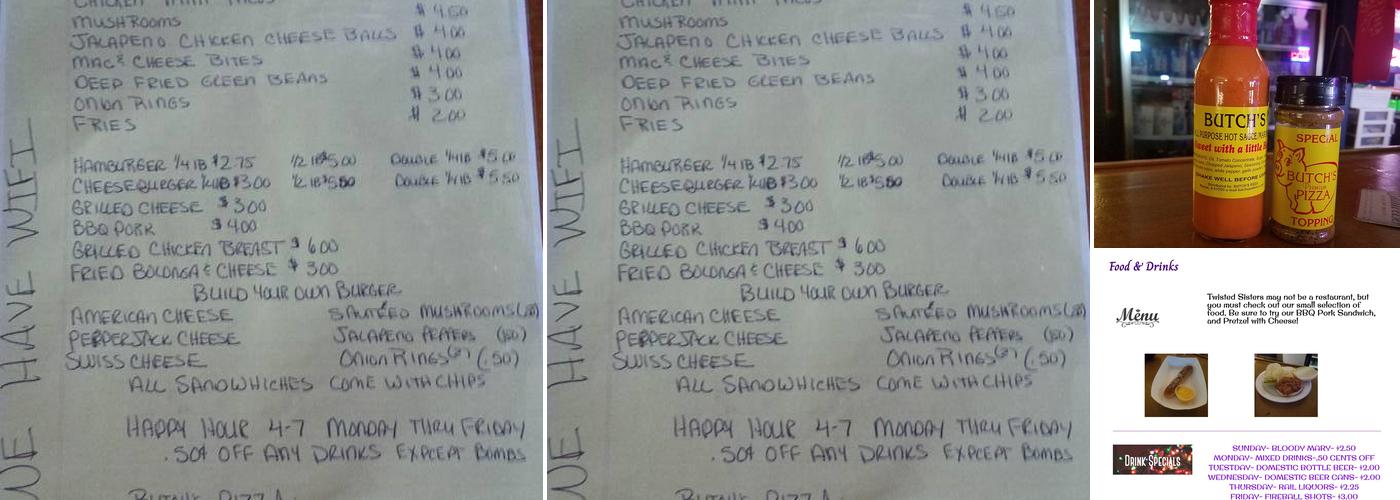 CHICKEN
MUSHROOMS $ 4.50
JALAPENO CHICKEN CHEESE BALLS $ 4.00
MAC & CHEESE BITES $ 4.00
DEEP FRIED GREEN BEANS $ 4.00
ONION RINGS $ 3.00
FRIES $ 2.00
HAMBURGER 1/4 lB $2.75 1/2 lB $5.00 DOUBLE 1/4 lB $5.00
CHEESEBURGER 1/4 lB $3.00 1/2 lB $5.50 DOUBLE 1/4 lB $5.50
GRILLED CHEESE $ 3.00
BBQ PORK $ 4.00
GRILLED CHICKEN BREAST $ 6.00
FRIED BOLONGA & CHEESE $ 3.00
BUILD YOUR OWN BURGER
AMERICAN CHEESE SAUTEED MUSHROOMS (.50)
PEPPERJACK CHEESE JALAPENO PEPPERS (.50)
SWISS CHEESE ONION RINGS (2) (.50)
ALL SANDWHICHES COME WITH CHIPS
HAPPY HOUR 4-7 MONDAY THRU FRIDAY
.50¢ OFF ANY DRINKS EXPCEPT BOMBS
WE HAVE WIFI
CHICKEN
MUSHROOMS $ 4.50
JALAPENO CHICKEN CHEESE BALLS $ 4.00
MAC & CHEESE BITES $ 4.00
DEEP FRIED GREEN BEANS $ 4.00
ONION RINGS $ 3.00
FRIES $ 2.00
HAMBURGER 1/4 lB $2.75 1/2 lB $5.00 DOUBLE 1/4 lB $5.00
CHEESEBURGER 1/4 lB $3.00 1/2 lB $5.50 DOUBLE 1/4 lB $5.50
GRILLED CHEESE $ 3.00
BBQ PORK $ 4.00
GRILLED CHICKEN BREAST $ 6.00
FRIED BOLONGA & CHEESE $ 3.00
BUILD YOUR OWN BURGER
AMERICAN CHEESE SAUTEED MUSHROOMS (.50)
PEPPERJACK CHEESE JALAPENO PEPPERS (.50)
SWISS CHEESE ONION RINGS (2) (.50)
ALL SANDWHICHES COME WITH CHIPS
HAPPY HOUR 4-7 MONDAY THRU FRIDAY
.50¢ OFF ANY DRINKS EXPCEPT BOMBS
WE HAVE WIFI
BUTCH'S
PURPOSE HOT SAUCE
sweet with a little
SHAKE WELL BEFORE
SPECIAL
BUTCH'S
PIZZA
TOPPING
Food & Drinks
Menu
Twisted Sisters may not be a restaurant, but
you must check out our small selection of
food. Be sure to try our BBQ Pork Sandwich,
and Pretzel with Cheese!
DRINK SPECIALS
SUNDAY- BLOODY MARY- $2.50
MONDAY- MIXED DRINKS-.50 CENTS OFF
TUESDAY- DOMESTIC BOTTLE BEER- $2.00
WEDNESDAY- DOMESTIC BEER CANS- $2.00
THURSDAY- RAIL LIQUORS- $2.25
FRIDAY- FIREBALL SHOTS- $3.00